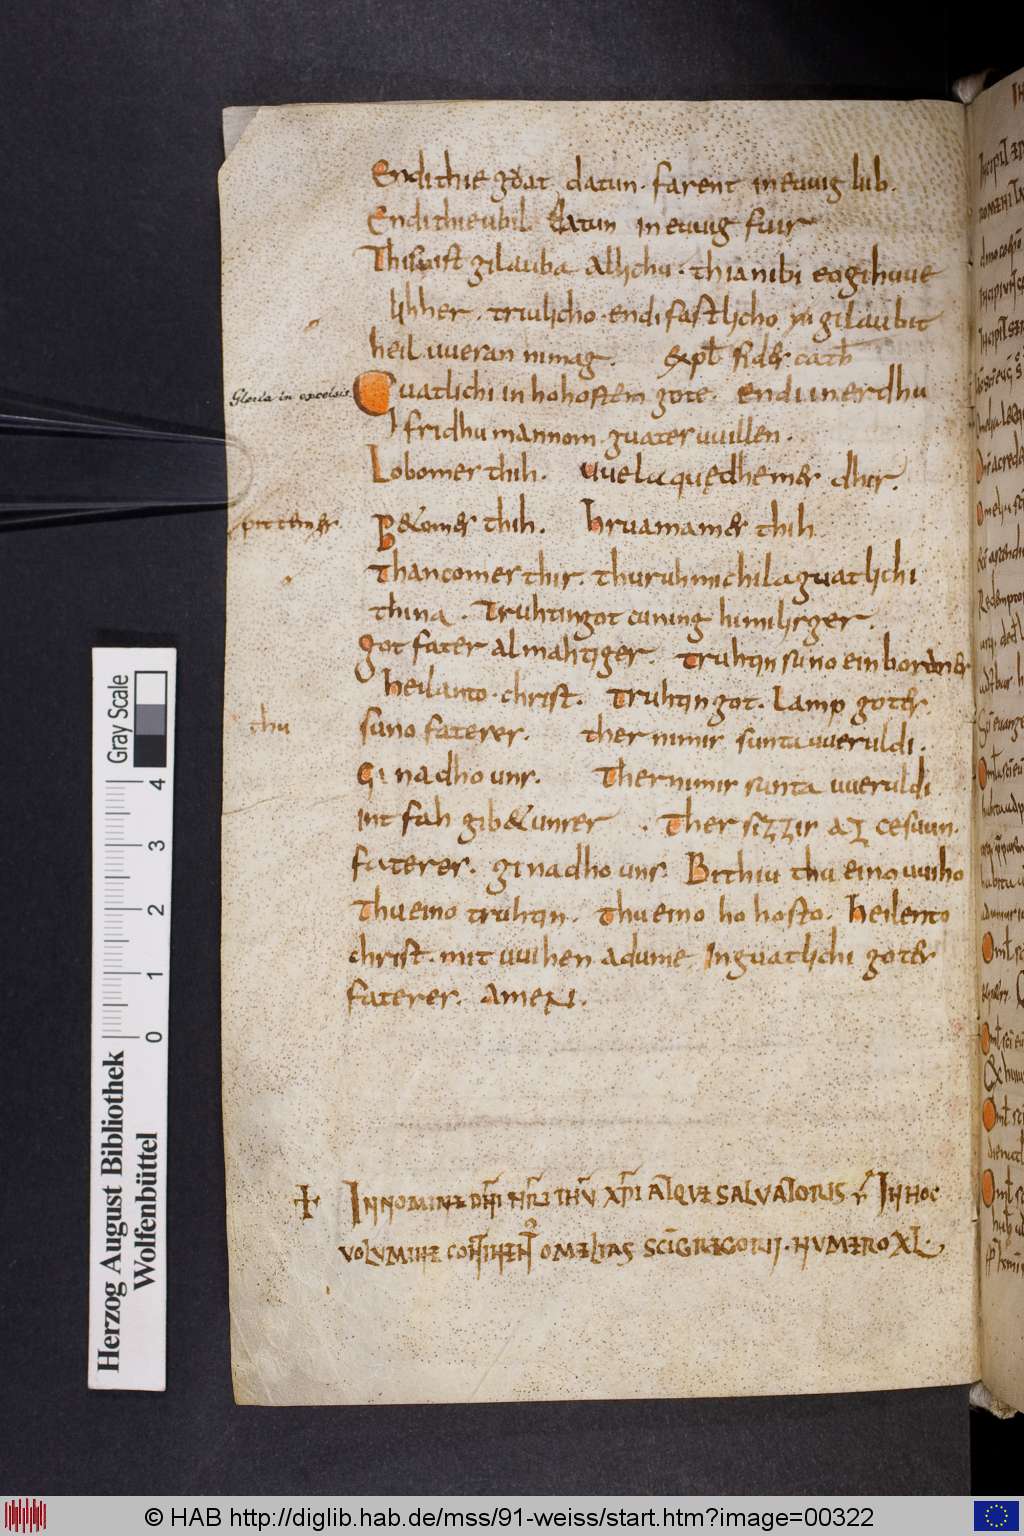 Endi thie guat datun. farent in euuig lib.
Endi thie ubil datun in euuig fuir
Thisu ist gilauba allichu. thia nibi eogihuue
lihher. triulicho. endi fastlicho gilaubit
heil uueran ni mag. Expl fides cath
Gloria in excelsis
Guatlichi in hohostem gote. endi in erdhu
fridhu mannom. guates uuillen.
Lobomes thih. Uuela quedhemes dhir.
pittemes
B&omes thih. hruamames thih
Thancomes thir. thuruh michila guatlichi
thina. Truhtin got cuning himilisger.
got fater almahtiger. truhtin suno einboroner
heilanto. christ. truhtin got. Lamp gotes
thu
suno fateres. ther nimis sunta uueruldi.
Ginadho uns. Ther nimis sunta uueruldi
intfah gib& unser. Ther sizzis az cesuun.
fateres. ginadho uns. Bithiu thu eino uuiho
Thu eino truhtin. Thu eino hohosto. heilento
christ. mit uuihen adume In guatlichi gotes
fateres. Amen.
✝ IN NOMINE DNI NRI IHU XPI ATQUE SALVATORIS IN HOC
VOLUMINE CONTINENT OMELIAS SCI GREGORII. NUMERO XL.
Gray Scale
4
3
2
1
0
Herzog August Bibliothek
Wolfenbüttel
© HAB http://diglib.hab.de/mss/91-weiss/start.htm?image=00322